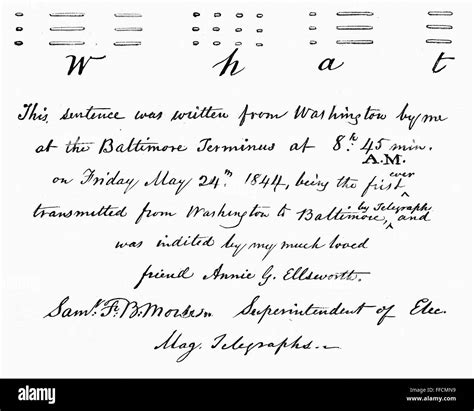 W h a t
This sentence was written from Washington by me
at the Baltimore Terminus at 8h. 45 min.
A.M.
on Friday May 24th. 1844, being the first ^ever
transmitted from Washington to Baltimore, ^by Telegraph and
was indited by my much loved
friend Annie G. Ellsworth.
Saml. F. B. Morse. Superintendent of Elec.
Mag. Telegraphs.
a alamy stock photo
FFCMN9
www.alamy.com